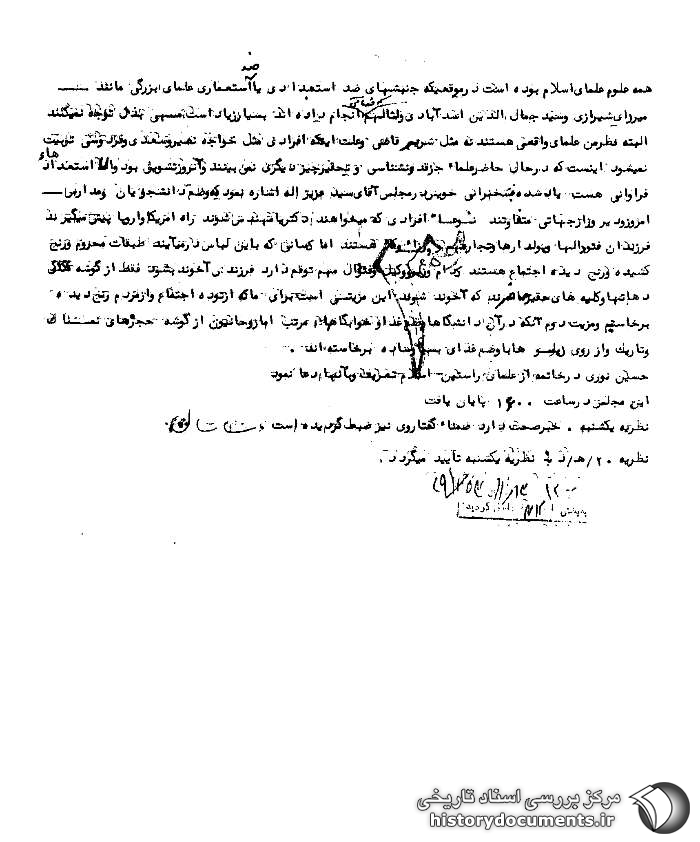 ضد
همه علوم علمای اسلام بوده است در موقعیکه جنبشهای ضد استعدادی یا استعماری علمای بزرگی مانند
میرزای شیرازی و سید جمال الدین اسد آبادی و امثالهم انجام داده اند بسیار زیاد است بسهمی بدان توجه نمیکنند
البته نظر من علمای واقعی هستند نه مثل شریح قاضی و علت اینکه افرادی مثل خواجه نصیر و سعدی و فردوسی تربیت
نمیشود اینست که در حال حاضر علماء جز قد و نشناسی و تحقیر چیز دیگری نمی بینند و آنروز تشویق بود والا استعداد های
فراوانی هست یاد شده سخنرانی خود در مجلس آقای سید عزیز اله اشاره نمود که وضع دانشجویان و مدارس
امروز و دیروز از جهاتی متفاوتند افرادی که میخواهند دکتر یا مهندس شوند راه امریکا و اروپا پیش میگیرند
فرزندان فئودالها و پولدارها و تجار هستند اما کسانی که باین لباس در میآیند طبقات محروم و رنج
کشیده و رنج دیده اجتماع هستند کدام وزیر و وکیل و مهم توقع دارد فرزندش آخوند بشود فقط از گوشه
دهاتها و کلبه های حقیر هستند که آخوند شوند این مزیتی است برای ما که از توده اجتماع و از مردم رنج دیده
برخاستیم و مزیت دوم آنکه در آن دانشگاهها وضع غذا و خوابگاه مرتب اما روحانیون از گوشه حجره‌های نمناک
و تاریک و از روی زیلو ها با وضع غذای بسیار ساده برخاسته اند .
حسین نوری در خاتمه از علمای راستین اسلام تعریف و بآنها دعا نمود
این مجلس در ساعت ۱۶۰۰ پایان یافت
نظریه یکشنبه . خبر صحت دارد ضمناً گفتار وی نیز ضبط گردیده است
نظریه ۲۰/هـ/د نظریه یکشنبه تأیید میگردد .
به بخش ۳۱۲ گردید
مرکز بررسی اسناد تاریخی
historydocuments.ir